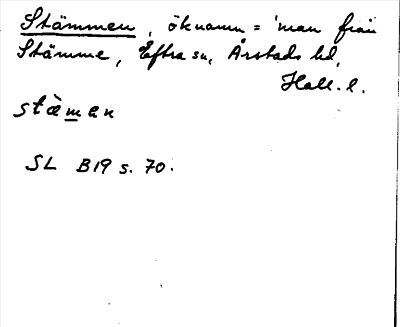 Stämmen, öknamn = 'man från
Stämme, Eftra sn, Årstads hd,
Hall. l.
stämen
SL B19 s. 70.